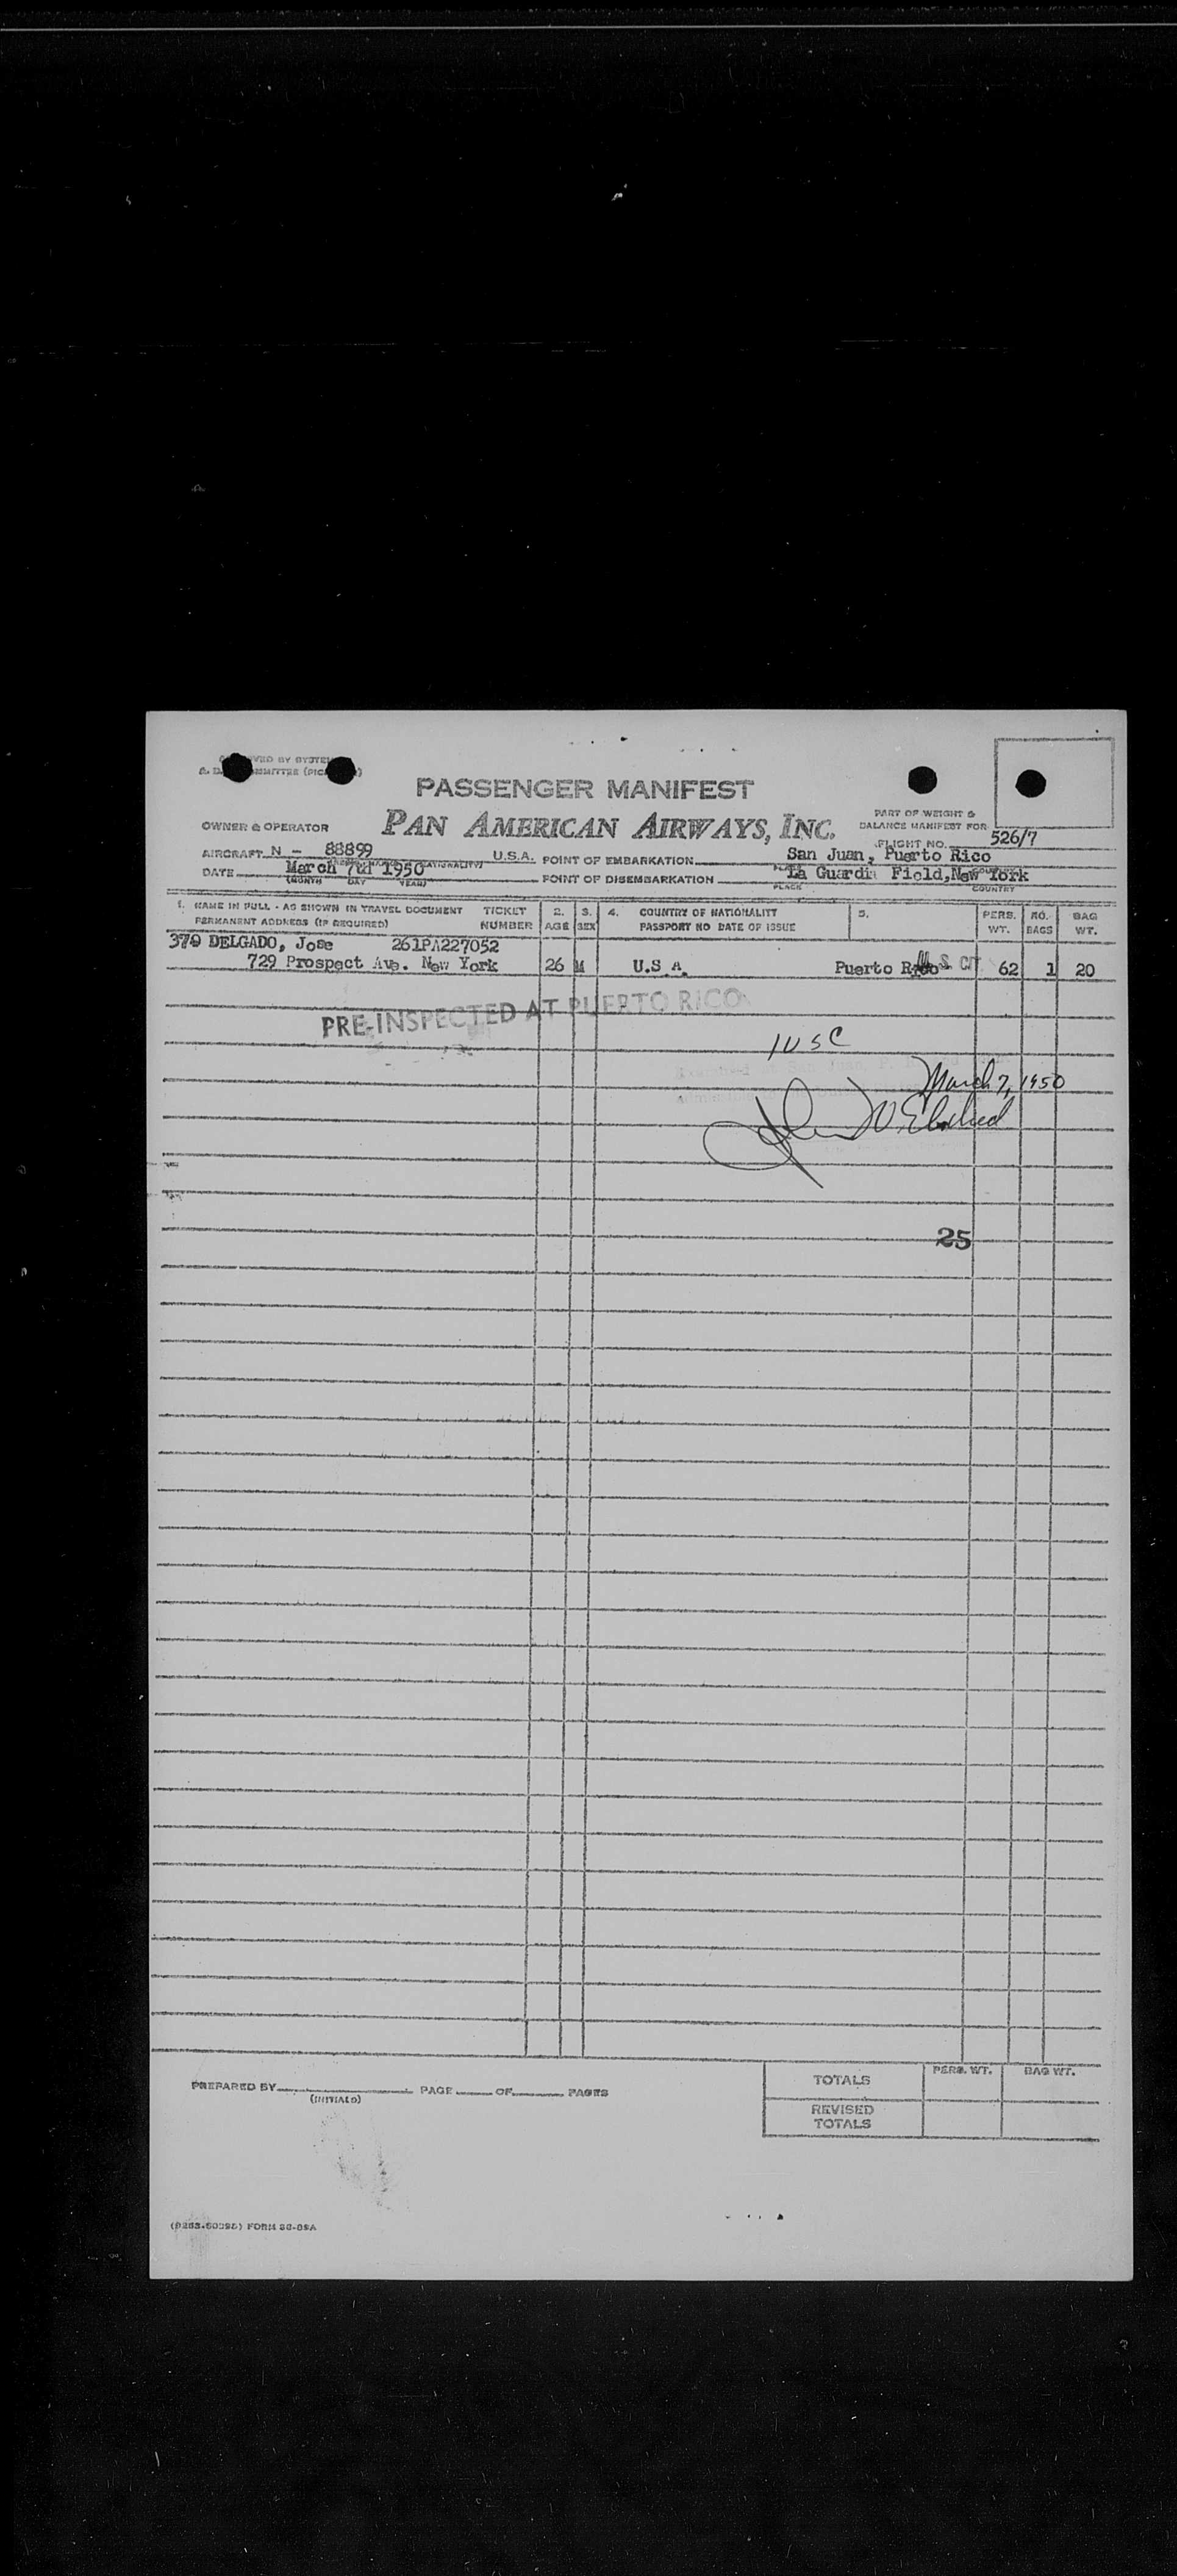 PASSENGER MANIFEST
PAN AMERICAN AIRWAYS, INC.
PART OF WEIGHT &
BALANCE MANIFEST FOR
OWNER & OPERATOR
FLIGHT NO. 526/7
AIRCRAFT N - 88899 U.S.A. POINT OF EMBARKATION San Juan, Puerto Rico
DATE March 7th 1950 POINT OF DISEMBARKATION La Guardia Field, New York
(MONTH DAY YEAR) PLACE COUNTRY
1. NAME IN FULL - AS SHOWN IN TRAVEL DOCUMENT TICKET 2. 3. 4. COUNTRY OF NATIONALITY 5. PERS. NO. BAG
PERMANENT ADDRESS (IF REQUIRED) NUMBER AGE SEX PASSPORT NO DATE OF ISSUE WT. BAGS WT.
370 DELGADO, Jose 261PA227052
729 Prospect Ave. New York 26 M U.S.A. Puerto Rico U.S. CIT 62 1 20
PRE-INSPECTED AT PUERTO RICO
1 USC
March 7, 1950
25
PREPARED BY PAGE OF PAGES
(INITIALS)
TOTALS PERS. WT. BAG WT.
REVISED
TOTALS